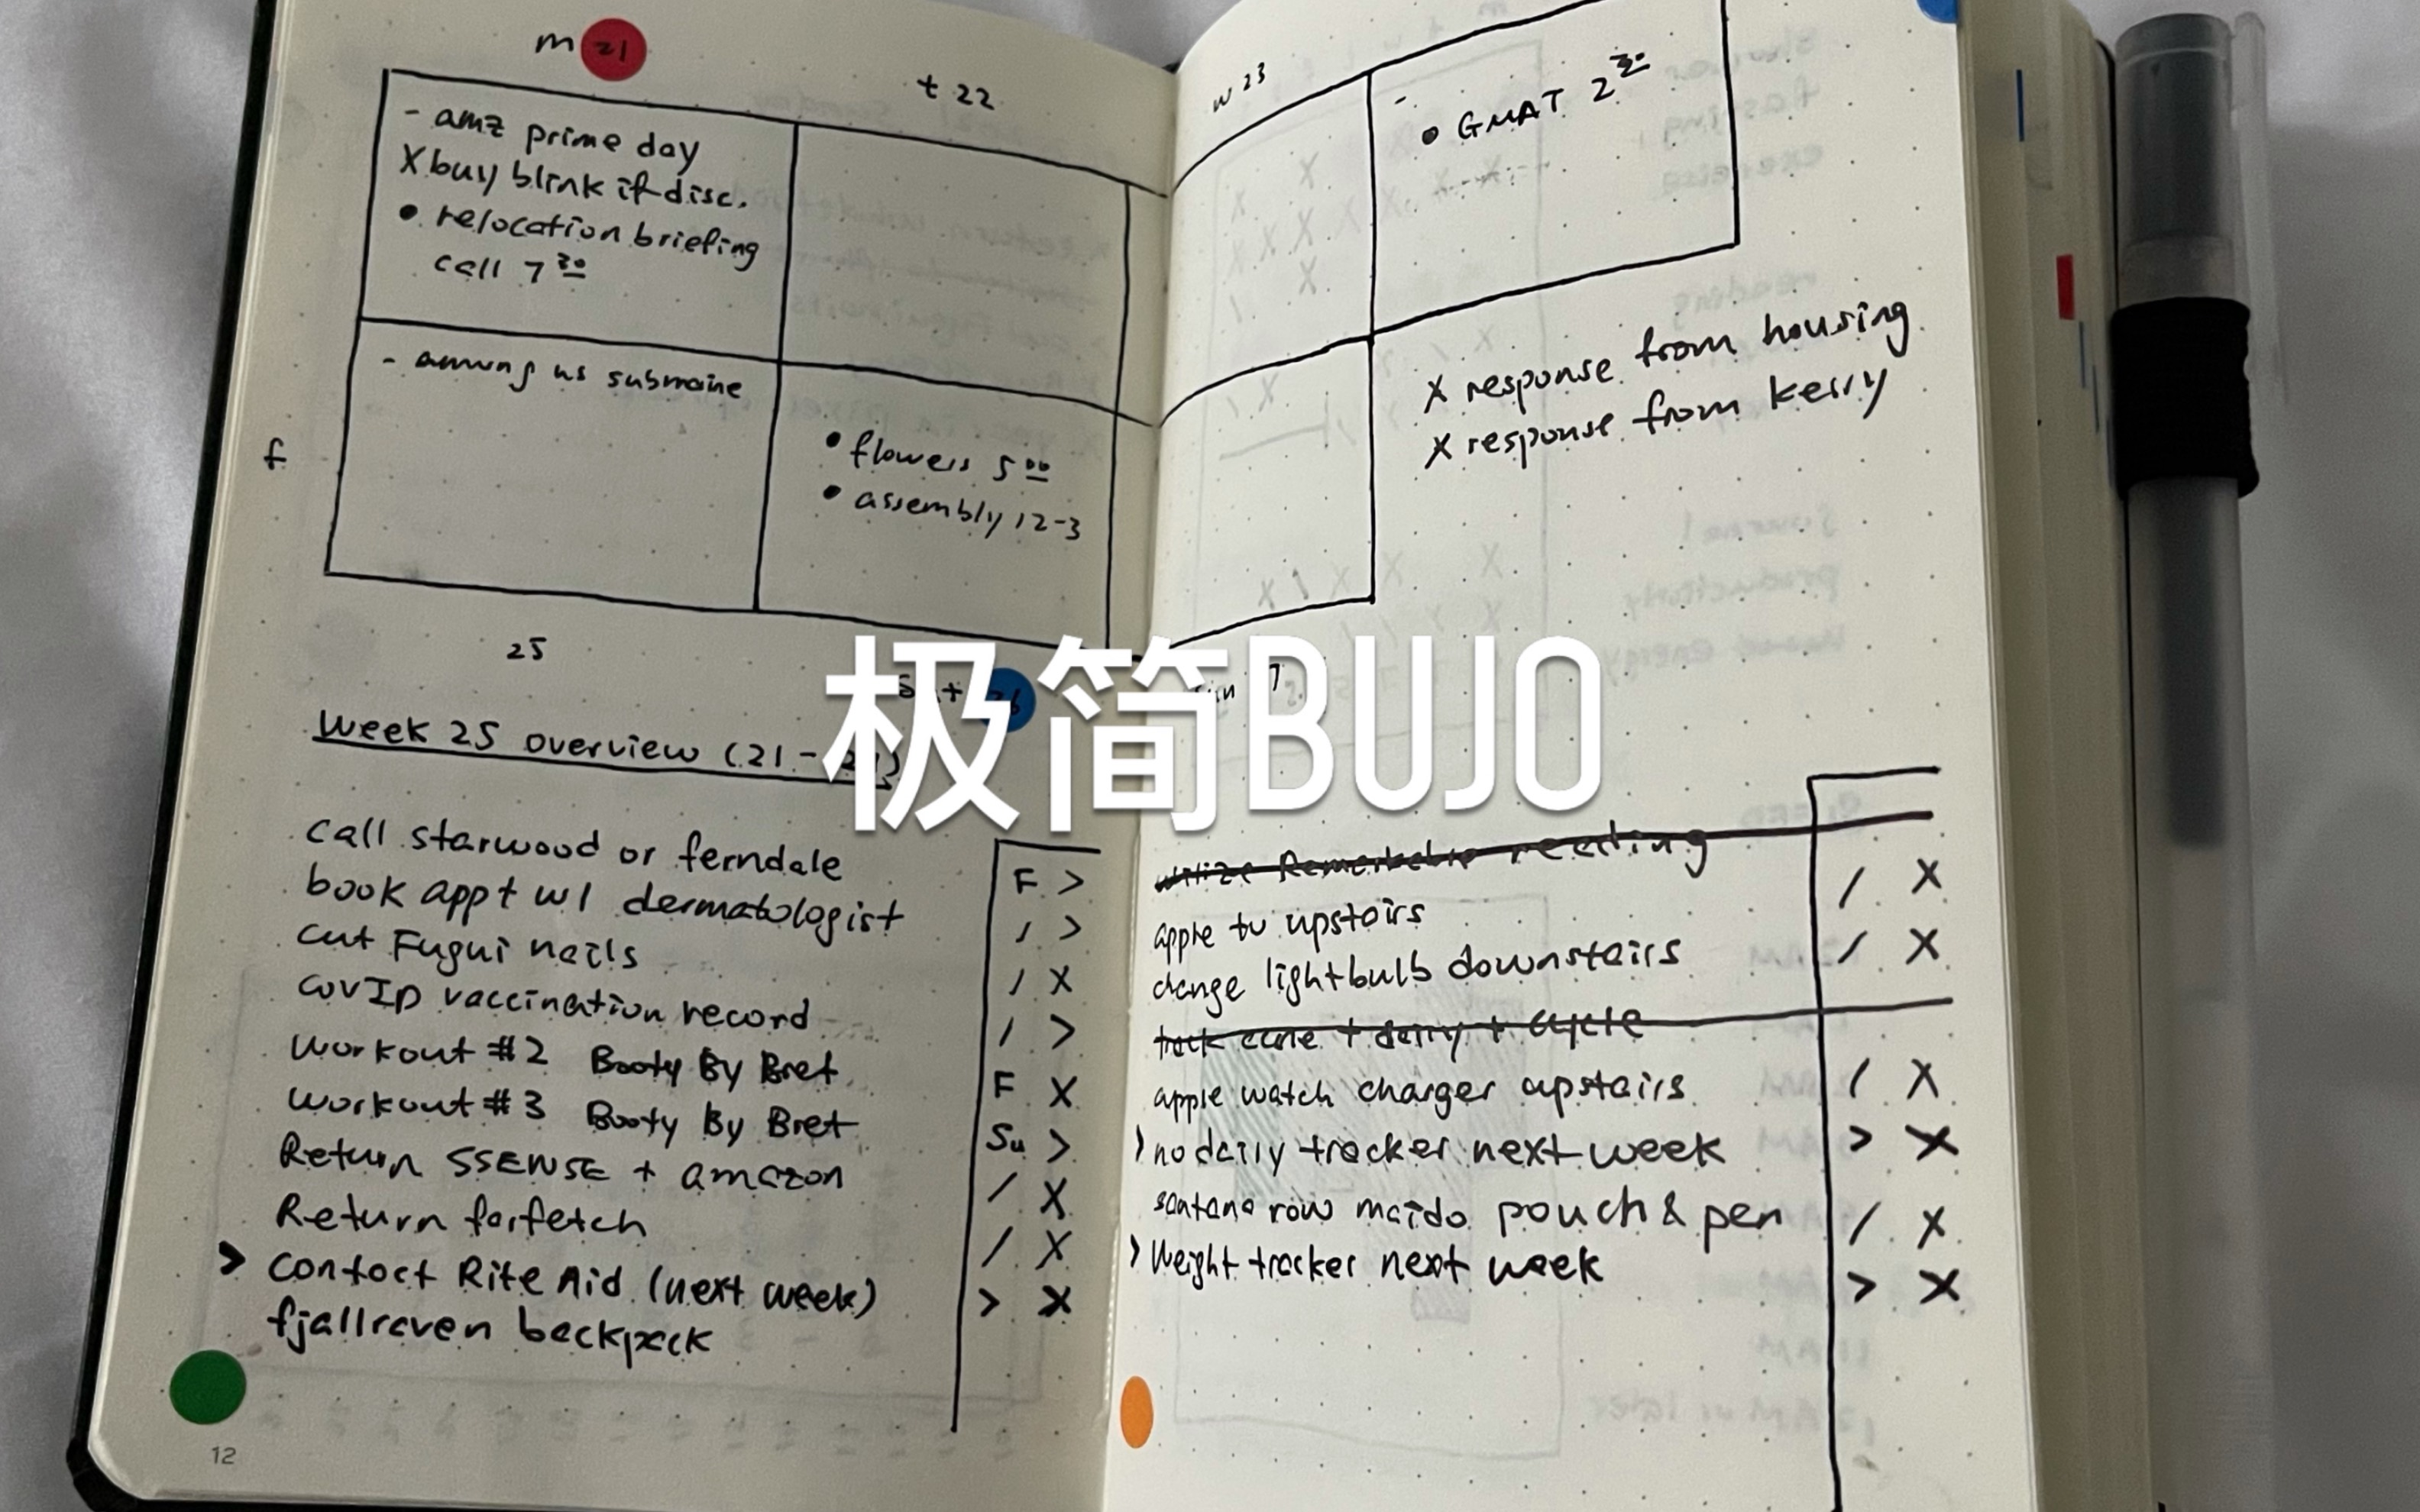 m 21
t 22
- amz prime day
X buy blink if disc.
• relocation briefing
call 7 30
- among us submarine
• flowers 5 00
• assembly 12-3
f
25
Sat 26
w 23
• GMAT 2 30
X response from housing
X response from kerry
sun
极简BUJO
Week 25 overview (21 -
call starwood or ferndale
book appt w/ dermatologist
cut Fugui nails
COVID vaccination record
workout #2 Booty By Bret
workout #3 Booty By Bret
Return SSENSE + amazon
Return farfetch
> contact Rite Aid (next week)
fjallraven backpack
F >
/ >
/ X
/ >
F X
Su >
/ X
/ X
> X
12
utilize Remarkable reading
apple tv upstairs
change lightbulb downstairs
track acne + dairy + cycle
apple watch charger upstairs
> no daily tracker next week
santana row maido pouch & pen
> Weight tracker next week
/ X
/ X
/ X
> X
/ X
> X